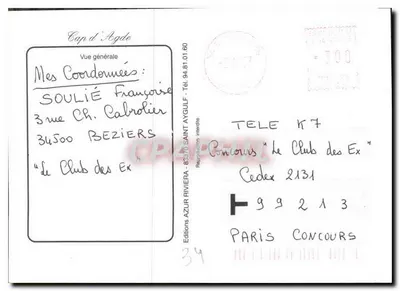 Cap d'Agde
Vue générale
Mes Coordonnées :
SOULIÉ Françoise
3 rue Ch. Cabrolier
34500 BEZIERS
"Le Club des Ex"
Editions AZUR RIVIERA - SAINT AYGULF - Tél. 94.81.01.60
Reproduction interdite
TELE K7
Concours "Le Club des Ex"
Cedex 2131
99213
PARIS CONCOURS
34